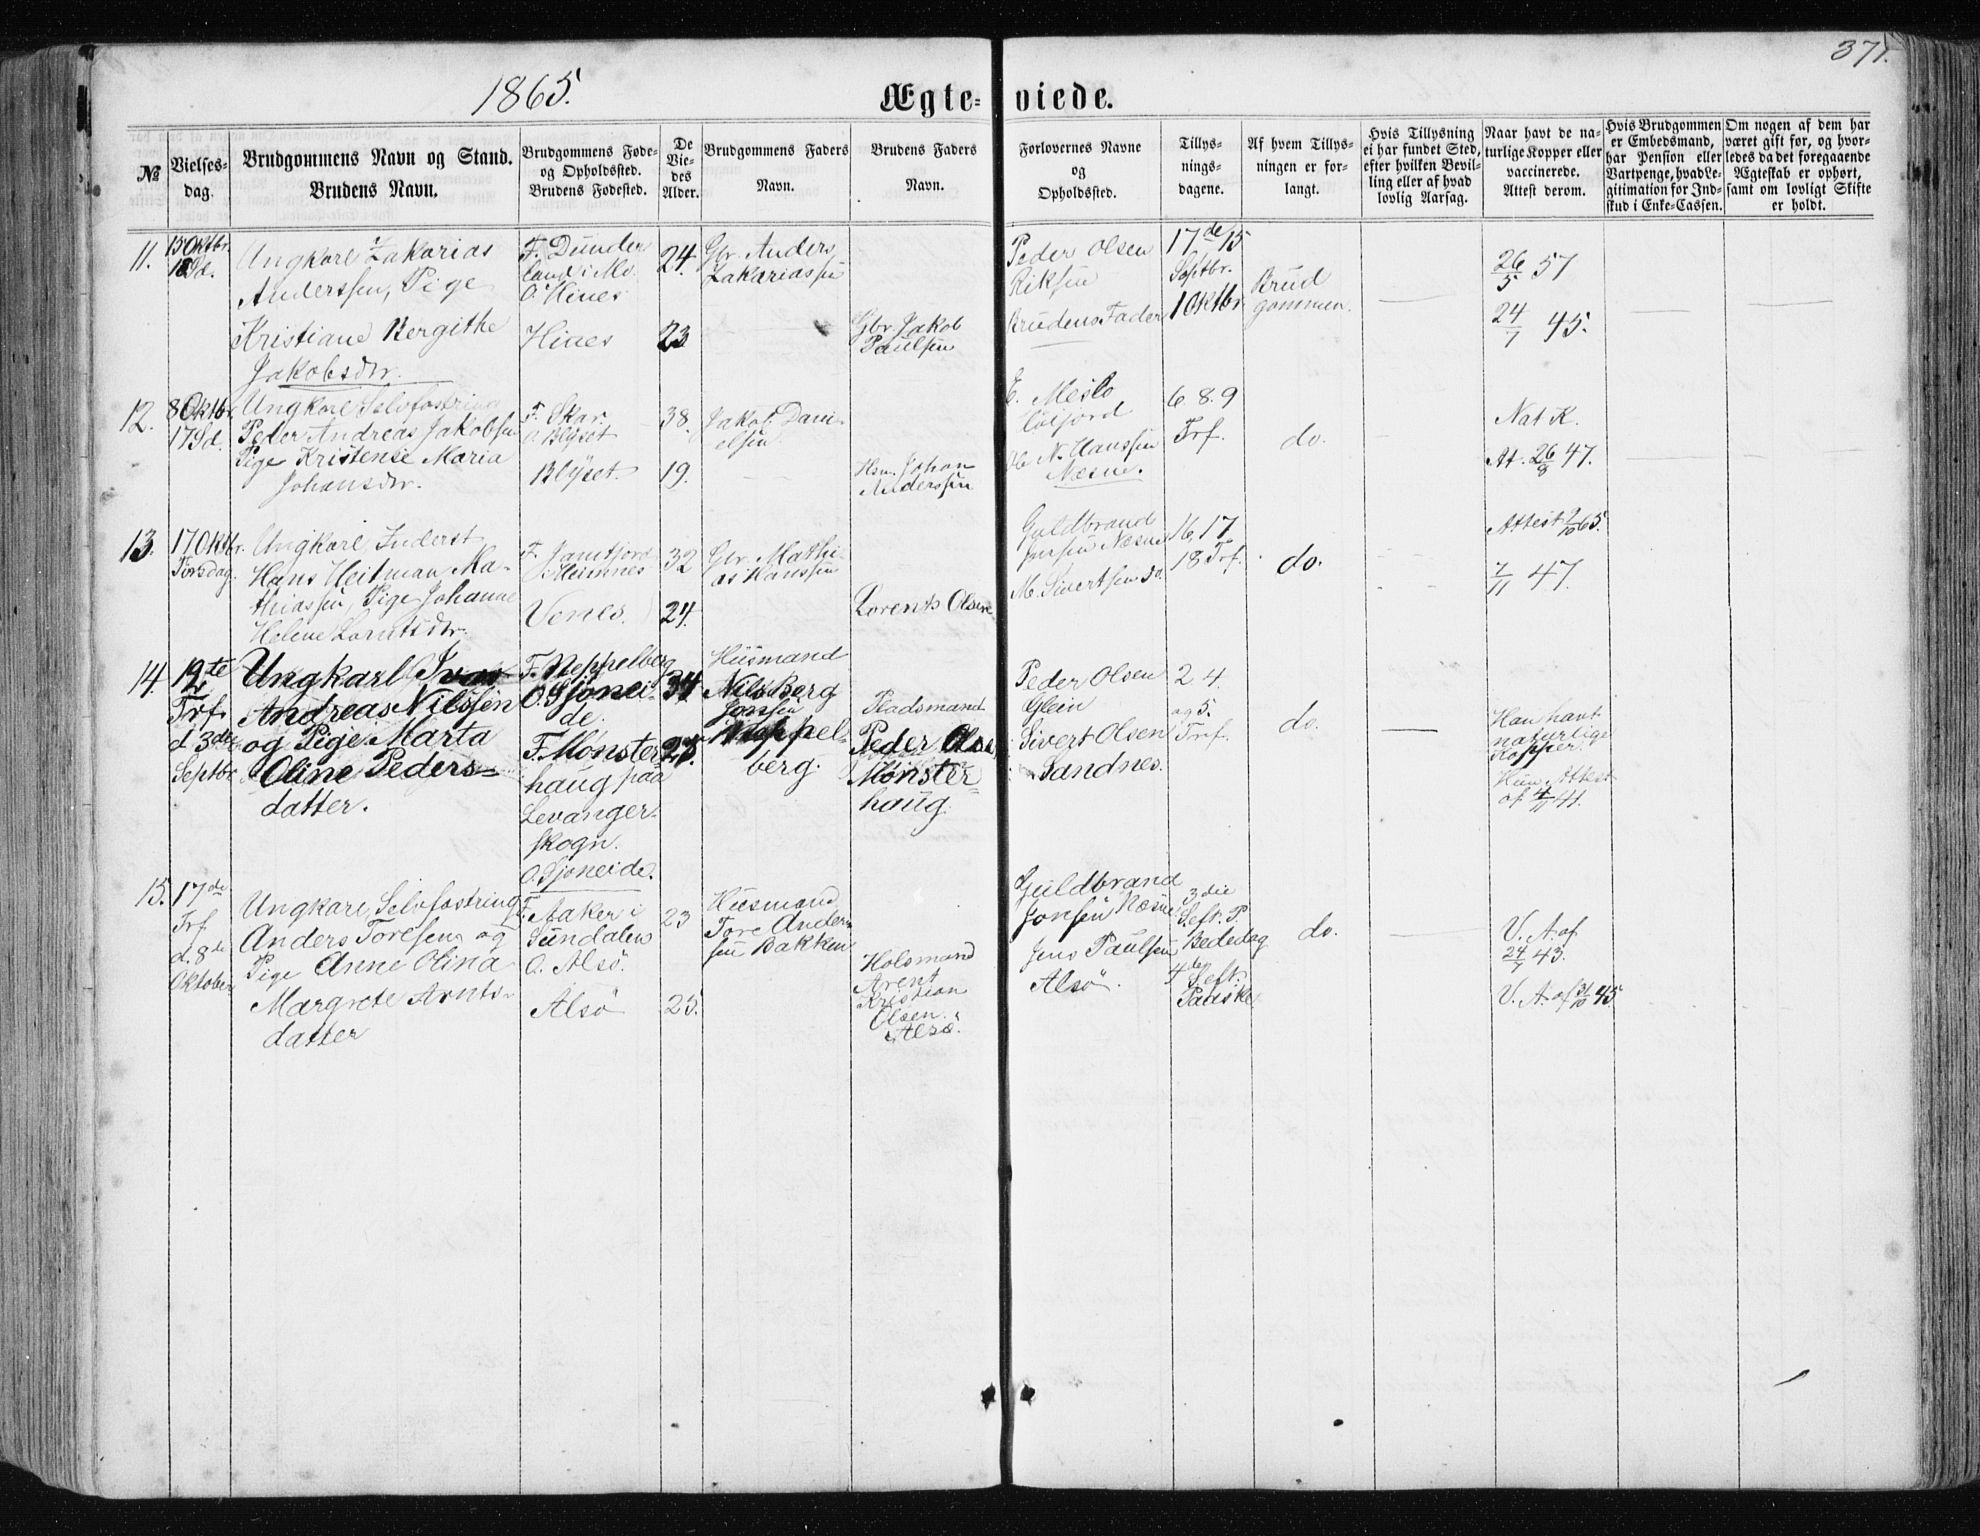 371.
1865.
Ægte-viede.
№
Vielses-
dag.
Brudgommens Navn og Stand.
Brudens Navn.
Brudgommens Føde-
og Opholdssted.
Brudens Fødested.
De
Vie-
des
Alder.
Brudgommens Faders
Navn.
Brudens Faders
Navn.
Forlovernes Navne
og
Opholdssted.
Tillys-
nings-
dagene.
Af hvem Tillys-
ningen er for-
langt.
Hvis Tillysning
ei har fundet Sted,
efter hvilken Bevil-
ling eller af hvad
lovlig Aarsag.
Naar havt de na-
turlige Kopper eller
vaccinerede.
Attest derom.
Hvis Brudgommen
er Embedsmand,
har Pension eller
Vartpenge, hvad Le-
gitimation for Ind-
skud i Enke-Cassen.
Om nogen af dem har
været gift for, og hvor-
ledes da det foregaaende
Ægteskab er ophørt,
samt om lovligt Skifte
er holdt.
11.
15 Oktbr.
Ungkarl Zakarias
Anderssen, Pige
Kristiane Bergithe
Jakobsdtr.
F. Dunder
land i Mo.
O. Hines
Hines
24.
23
Gbr. Anders
Zakariassen
Gbr. Jakob
Paulsen
Peder Olsen
Riksen
Brudens Fader
17de 15
Septbr.
1 Oktbr.
Brud
gommen.
26/5 57
24/7 45.
12.
8 Oktbr.
Ungkarl Selvfostring
Peder Andreas Jakobsen
Pige Kristense Maria
Johansdtr.
F. Skar
O. Blyset
Blyset.
38.
19.
Jakob Dani
elsen
Hsm. Johan
Anderssen
E. Meslo
N. Hanssen
Næsne.
6 8. 9
Trf.
do.
Nat K.
At. 26/8 47.
13.
17 Oktbr.
Torsdag.
Ungkarl Inderst
Hans Heitman Ma-
thiassen, Pige Johanne
Helene Lorntsdtr.
F. Jamtjord
32
Venes.
24.
Gbr. Mathi-
as Hanssen
Lorents Olsen
Guldbrand
Jonsen Næsne
M. Sivertsen do.
16, 17
18 Trf.
do.
47.
14.
12te
Trf.
d 3die
Septbr.
Ungkarl Ivar
Andreas Nilssen
og Pige Marta
Oline Peders-
datter.
F. Neppelberg
O. Sjonei-
de.
F. Mønster
haug paa
Levanger-
skogn.
O. Sjoneide.
34
25.
Husmand
Nils Berg
Jonsen
Neppel-
berg.
Pladsmand
Peder Olsen
Mønster
haug
Peder Olsen
Glein
Sivert Olsen
Sandnes.
2 4.
og 5.
Trf.
do.
Han havt
naturlige
Kopper.
Hun Attest
af 4/11 41.
15.
17de
Trf
d. 8de
Oktober
Ungkarl, Selvfostring
Anders Toresen og
Pige Anne Olina
Margrete Arnts-
datter
F. Aaker i
Sundalen
O. Alsö.
Alsö
23
25.
Husmand
Tore Ander
sen Bakken
Holsmand
Arent
Kristian
Olsen
Alsö.
Guldbrand
Jonsen Næsne
Jens Paulsen
Alsö.
3die
S. eft. P.
Bededag
4de
S. eft.
Paaske
do.
V. A. af
24/7 43.
V. A. af 31/10 45